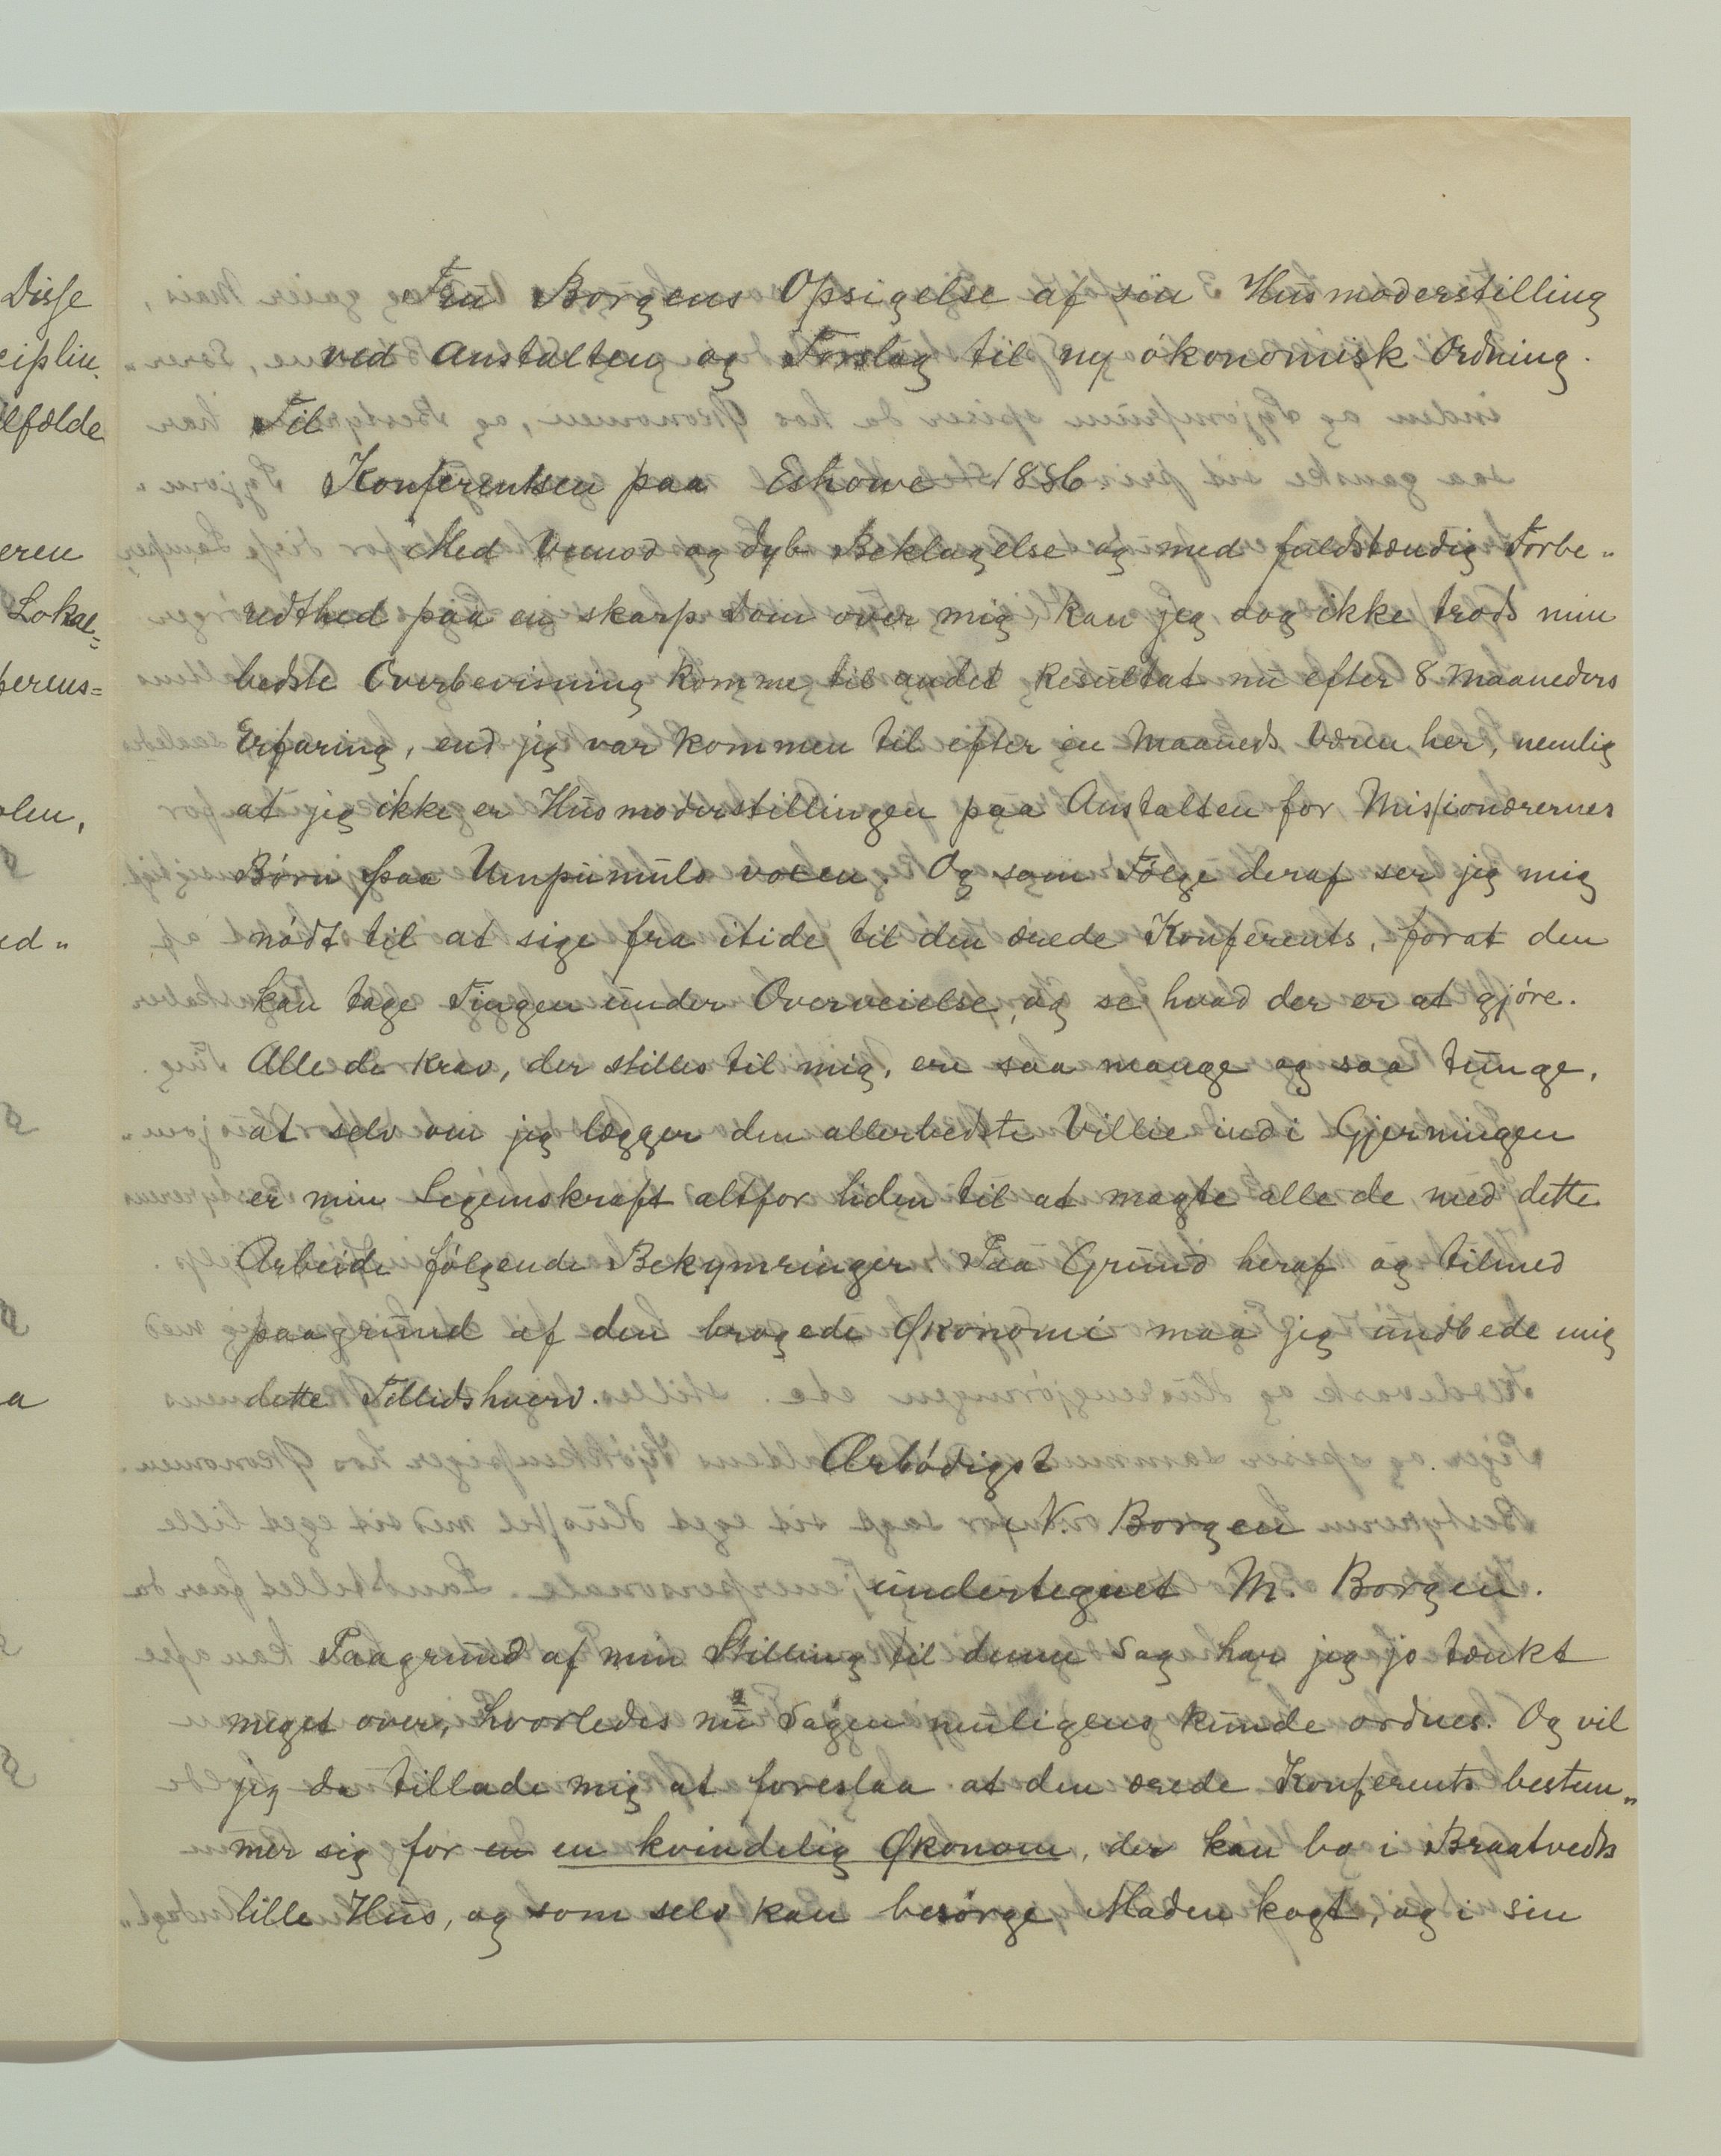 Fru Borgens Opsigelse af sin Husmoderstilling
ved Anstalten og Forslag til ny økonomisk Ordning.
Til
Konferentsen paa Eshowe 1886.
Med Vemod og dyb Beklagelse og med fuldstændig Forbe„
redthed paa en skarp Dom over mig, kan jeg dog ikke trods min
bedste Overbevisning komme til andet Resultat nu efter 8 Maaneders
Erfaring, end jeg var kommen til efter en Maaneds Væren her, nemlig
at jeg ikke er Husmoderstillingen paa Anstalten for Missionærernes
Børn paa Umpumulo voxen. Og som Følge deraf ser jeg mig
nødt til at sige fra itide til den ærede Konferents, forat den
kan tage Tingen under Overveielse, og se hvad der er at gjøre.
Alle de Krav, der stilles til mig, ere saa mange og saa tunge,
at selv om jeg lægger den allerbedste Villie ind i Gjerningen
er min Legemskraft altfor liden til at magte alle de med dette
Arbeide følgende Bekymringer. Paa Grund heraf og tilmed
paagrund af den brogede Økonomi maa jeg undbede mig
dette Tillidshverv.
Ærbødigst
N. Borgen
undertegnet M. Borgen.
Paagrund af min Stilling til denne Sag har jeg jo tænkt
meget over, hvorledes nu Sagen muligens kunde ordnes. Og vil
jeg da tillade mig at foreslaa at den ærede Konferents bestem„
mer sig for en en kvindelig Økonom, der kan bo i Braatvedts
lille Hus, og som selv kan besørge Maden kogt, og i sin
Disse
ciplin
lfælde
eren
Lokal=
perens=
olen,
ed„
a